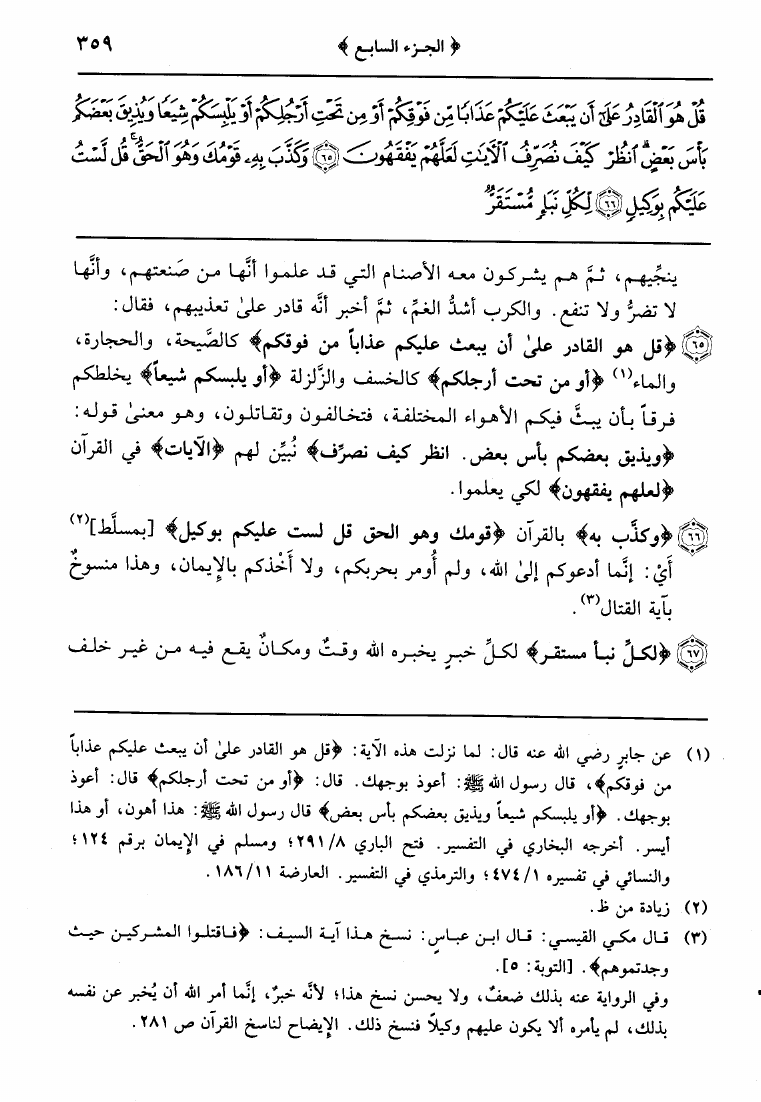 ﴿ الجزء السابع ﴾ ٣٥٩
قُلْ هُوَ ٱلْقَادِرُ عَلَىٰٓ أَن يَبْعَثَ عَلَيْكُمْ عَذَابًا مِّن فَوْقِكُمْ أَوْ مِن تَحْتِ أَرْجُلِكُمْ أَوْ يَلْبِسَكُمْ شِيَعًا وَيُذِيقَ بَعْضَكُم
بَأْسَ بَعْضٍ ۗ ٱنظُرْ كَيْفَ نُصَرِّفُ ٱلْـَٔايَٰتِ لَعَلَّهُمْ يَفْقَهُونَ ﴿٦٥﴾ وَكَذَّبَ بِهِۦ قَوْمُكَ وَهُوَ ٱلْحَقُّ ۚ قُل لَّسْتُ
عَلَيْكُم بِوَكِيلٍ ﴿٦٦﴾ لِّكُلِّ نَبَإٍ مُّسْتَقَرٌّ ۚ
ينجِّيهم، ثمَّ هم يشركون معه الأصنام التي قد علموا أنَّها من صَنعتهم، وأنَّها
لا تضرُّ ولا تنفع. والكرب أشدُّ الغمِّ، ثمَّ أخبر أنَّه قادر علىٰ تعذيبهم، فقال:
﴿٦٥﴾ ﴿قل هو القادر علىٰ أن يبعث عليكم عذاباً من فوقكم﴾ كالصَّيحة، والحجارة،
والماء(١) ﴿أو من تحت أرجلكم﴾ كالخسف والزَّلزلة ﴿أو يلبسكم شيعاً﴾ يخلطكم
فرقاً بأن يبثَّ فيكم الأهواء المختلفة، فتخالفون وتقاتلون، وهو معنىٰ قوله:
﴿ويذيق بعضكم بأس بعض. انظر كيف نصرِّف﴾ نُبيِّن لهم ﴿الآيات﴾ في القرآن
﴿لعلهم يفقهون﴾ لكي يعلموا.
﴿٦٦﴾ ﴿وكذَّب به﴾ بالقرآن ﴿قومك وهو الحق قل لست عليكم بوكيل﴾ [بمسلَّط](٢)
أيْ: إنَّما أدعوكم إلىٰ الله، ولم أُومر بحربكم، ولا أَخْذكم بالإيمان، وهذا منسوخٌ
بآية القتال(٣).
﴿٦٧﴾ ﴿لكلِّ نبأ مستقر﴾ لكلِّ خبرٍ يخبره الله وقتٌ ومكانٌ يقع فيه من غير خلف
(١) عن جابرٍ رضي الله عنه قال: لما نزلت هذه الآية: ﴿قل هو القادر علىٰ أن يبعث عليكم عذاباً
من فوقكم﴾، قال رسول الله ﷺ: أعوذ بوجهك. قال: ﴿أو من تحت أرجلكم﴾ قال: أعوذ
بوجهك. ﴿أو يلبسكم شيعاً ويذيق بعضكم بأس بعض﴾ قال رسول الله ﷺ: هذا أهون، أو هذا
أيسر. أخرجه البخاري في التفسير. فتح الباري ٢٩١/٨؛ ومسلم في الإيمان برقم ١٢٤؛
والنسائي في تفسيره ٤٧٤/١؛ والترمذي في التفسير. العارضة ١٨٦/١١.
(٢) زيادة من ظ.
(٣) قال مكي القيسي: قال ابن عباسٍ: نسخ هذا آية السيف: ﴿فاقتلوا المشركين حيث
وجدتموهم﴾. [التوبة: ٥].
وفي الرواية عنه بذلك ضعفٌ، ولا يحسن نسخ هذا؛ لأنَّه خبرٌ، إنَّما أمر الله أن يُخبر عن نفسه
بذلك، لم يأمره ألا يكون عليهم وكيلاً فنسخ ذلك. الإيضاح لناسخ القرآن ص ٢٨١.